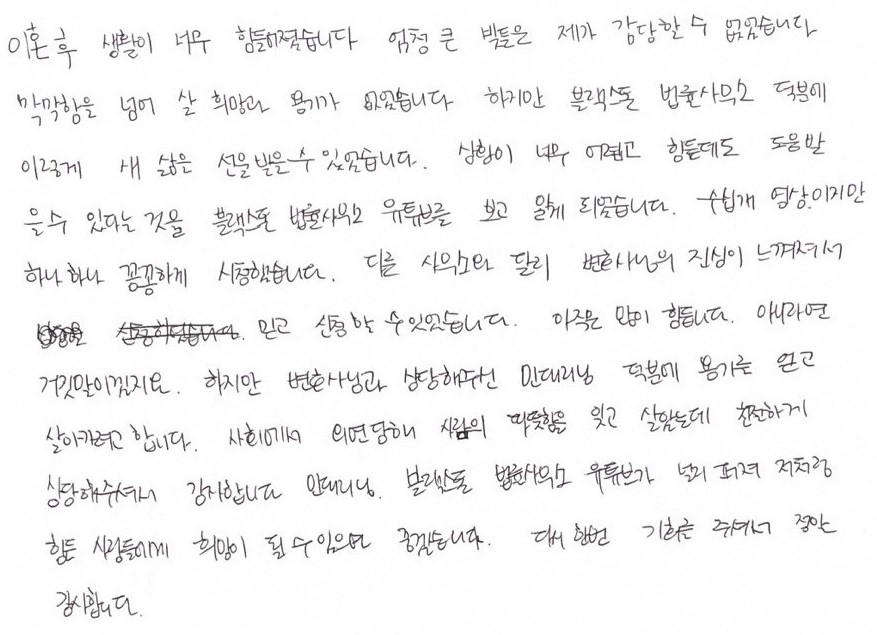 이혼 후 생활이 너무 힘들어졌습니다 엄청 큰 빚들은 제가 감당할 수 없었습니다
막막함을 넘어 살 희망과 용기가 없었습니다 하지만 블랙스톤 법률사무소 덕분에
이렇게 새 삶을 선물 받을 수 있었습니다. 상황이 너무 어렵고 힘든데도 도움받
을 수 있다는 것을 블랙스톤 법률사무소 유튜브를 보고 알게 되었습니다. 수십개 영상이지만
하나하나 꼼꼼하게 시청했습니다. 다른 사무소와 달리 변호사님의 진심이 느껴져서
믿고 신청할 수 있었습니다. 아직은 많이 힘듭니다. 아니라면
거짓말이겠지요. 하지만 변호사님과 상담해주신 민대리님 덕분에 용기를 얻고
살아가려고 합니다. 사회에서 외면당해 사람의 따뜻함을 잊고 살았는데 친절하게
상담해주셔서 감사합니다 민대리님. 블랙스톤 법률사무소 유튜브가 널리 퍼져 저처럼
힘든 사람들에게 희망이 될 수 있으면 좋겠습니다. 다시 한번 기회를 주셔서 정말
감사합니다.